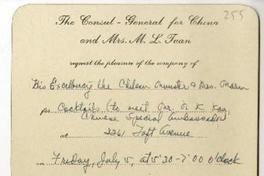 255
The Consul-General for China
and Mrs. M. L. Tuan
request the pleasure of the company of
His Excellency the Chilean Minister & Mrs.
for Cocktails (to meet Dr. K.
Chinese Special Ambassador
at 2261 Taft Avenue
on Friday, July 5, at 5:30-7:00 o'clock